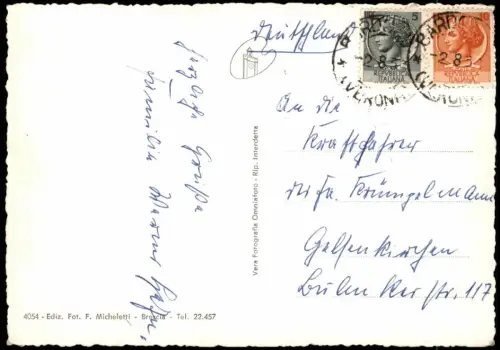 Deutschland
5
REPUBBLICA
ITALIANA
10
REPUBBLICA
ITALIANA
BARDO
-2.8
(VERONA)
Herzliche Grüße
Familie Werner
An die
Kraftfahrer
der Fa. Krüngelmann
Gelsenkirchen
Str. 117
Vera Fotografia Omniafoto - Rip. Interdetta
4054 - Ediz. Fot. F. Micheletti - Brescia - Tel. 22.457